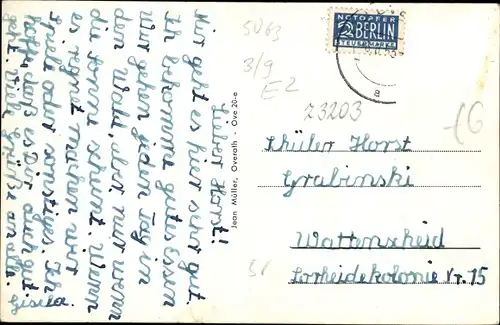 Lieber Horst!
Mir geht es hier sehr gut.
Ich bekomme gutes Essen
Wir gehen jeden Tag in
den Wald, aber nur wenn
die Sonne scheint. Wenn
es regnet machen wir
Spiele oder sonstiges. Ich
hoffe, daß es Dir auch gut
geht. Viele Grüße an alle.
Gisela.
Jean Müller, Overath - Ove 20-e
NOTOPFER
2 BERLIN
STEUERMARKE
5063
3/9
E2
23203
Schüler Horst
Grabinski
Wattenscheid
Vorheidekolonie Nr. 15